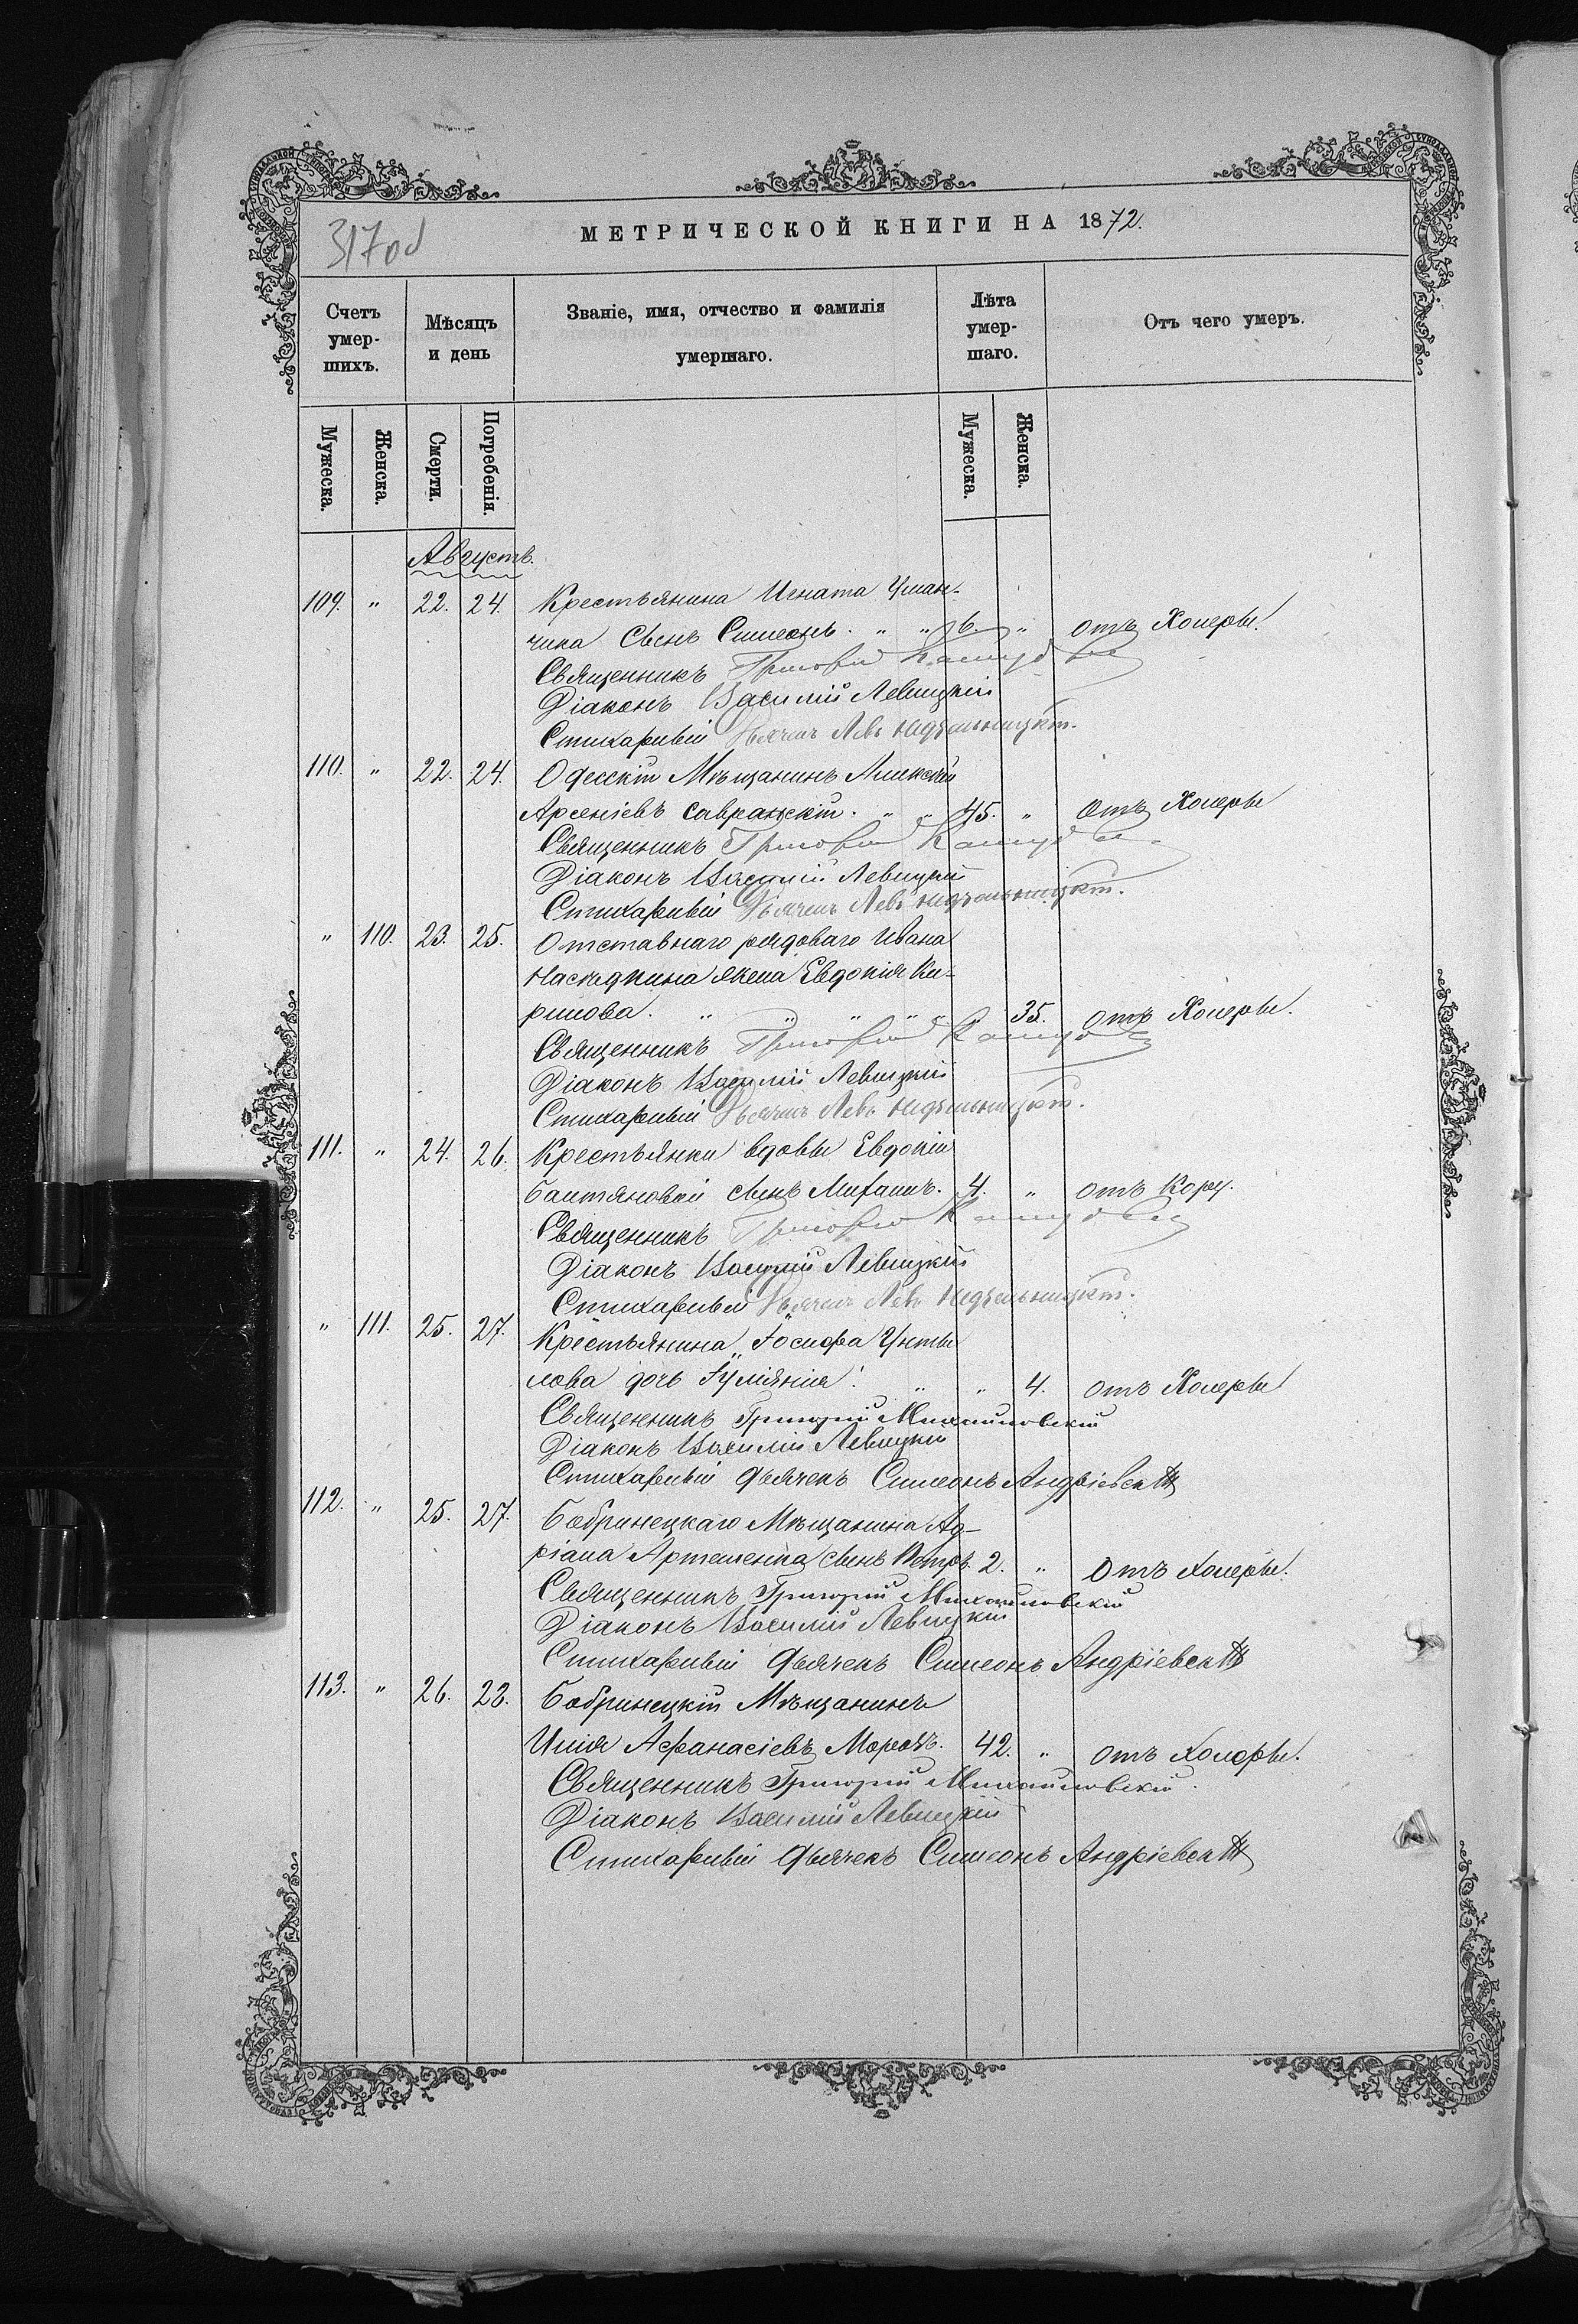 317 об
МЕТРИЧЕСКОЙ КНИГИ НА 1872.
Счетъ умершихъ.
Мѣсяцъ и день
Званіе, имя, отчество и фамилія умершаго.
Лѣта умершаго.
Отъ чего умеръ.
Мужеска. Женска. Смерти. Погребенія. Мужеска. Женска.
Августъ.
109. " 22. 24. Крестьянина Игната Уман-
чика Сынъ Симеонъ. " " 6. " отъ Холеры.
Священникъ Григорій
Діаконъ Василій Левицкій
Стихарный Дьячекъ Левъ Недѣльницкій.
110. " 22. 24. Одесскій Мѣщанинъ Алексѣй
Арсеніевъ Савранскій. " " 45. " Отъ Холеры
Священникъ Григорій
Діаконъ Василій Левицкій
Стихарный Дьячекъ Левъ Недѣльницкій.
" 110. 23. 25. Отставнаго рядоваго Ивана
Наслѣдкина жена Евдокія Ки-
рилова. " " " " " " 35. отъ Холеры.
Священникъ Григорій
Діаконъ Василій Левицкій
Стихарный Дьячекъ Левъ Недѣльницкій.
111. " 24. 26. Крестьянки вдовы Евдокіи
сынъ Михаилъ. 4. " отъ Кору.
Священникъ Григорій
Діаконъ Василій Левицкій
Стихарный Дьячекъ Левъ Недѣльницкій.
" 111. 25. 27. Крестьянина Іосифа Унты
лова дочь Іуліянія. " " 4. отъ Холеры
Священникъ Григорій Михайловскій
Діаконъ Василій Левицкій
Стихарный Дьячекъ Симеонъ Андріевскій
112. " 25. 27. Бобринецкаго Мѣщанина Ад-
ріана Артеменка сынъ Петръ. 2. " Отъ Холеры.
Священникъ Григорій Михайловскій
Діаконъ Василій Левицкій
Стихарный Дьячекъ Симеонъ Андріевскій
113. " 26. 28. Бобринецкій Мѣщанинъ
Илія Афанасіевъ Морозъ. 42. " отъ Холеры.
Священникъ Григорій Михайловскій.
Діаконъ Василій Левицкій
Стихарный Дьячекъ Симеонъ Андріевскій